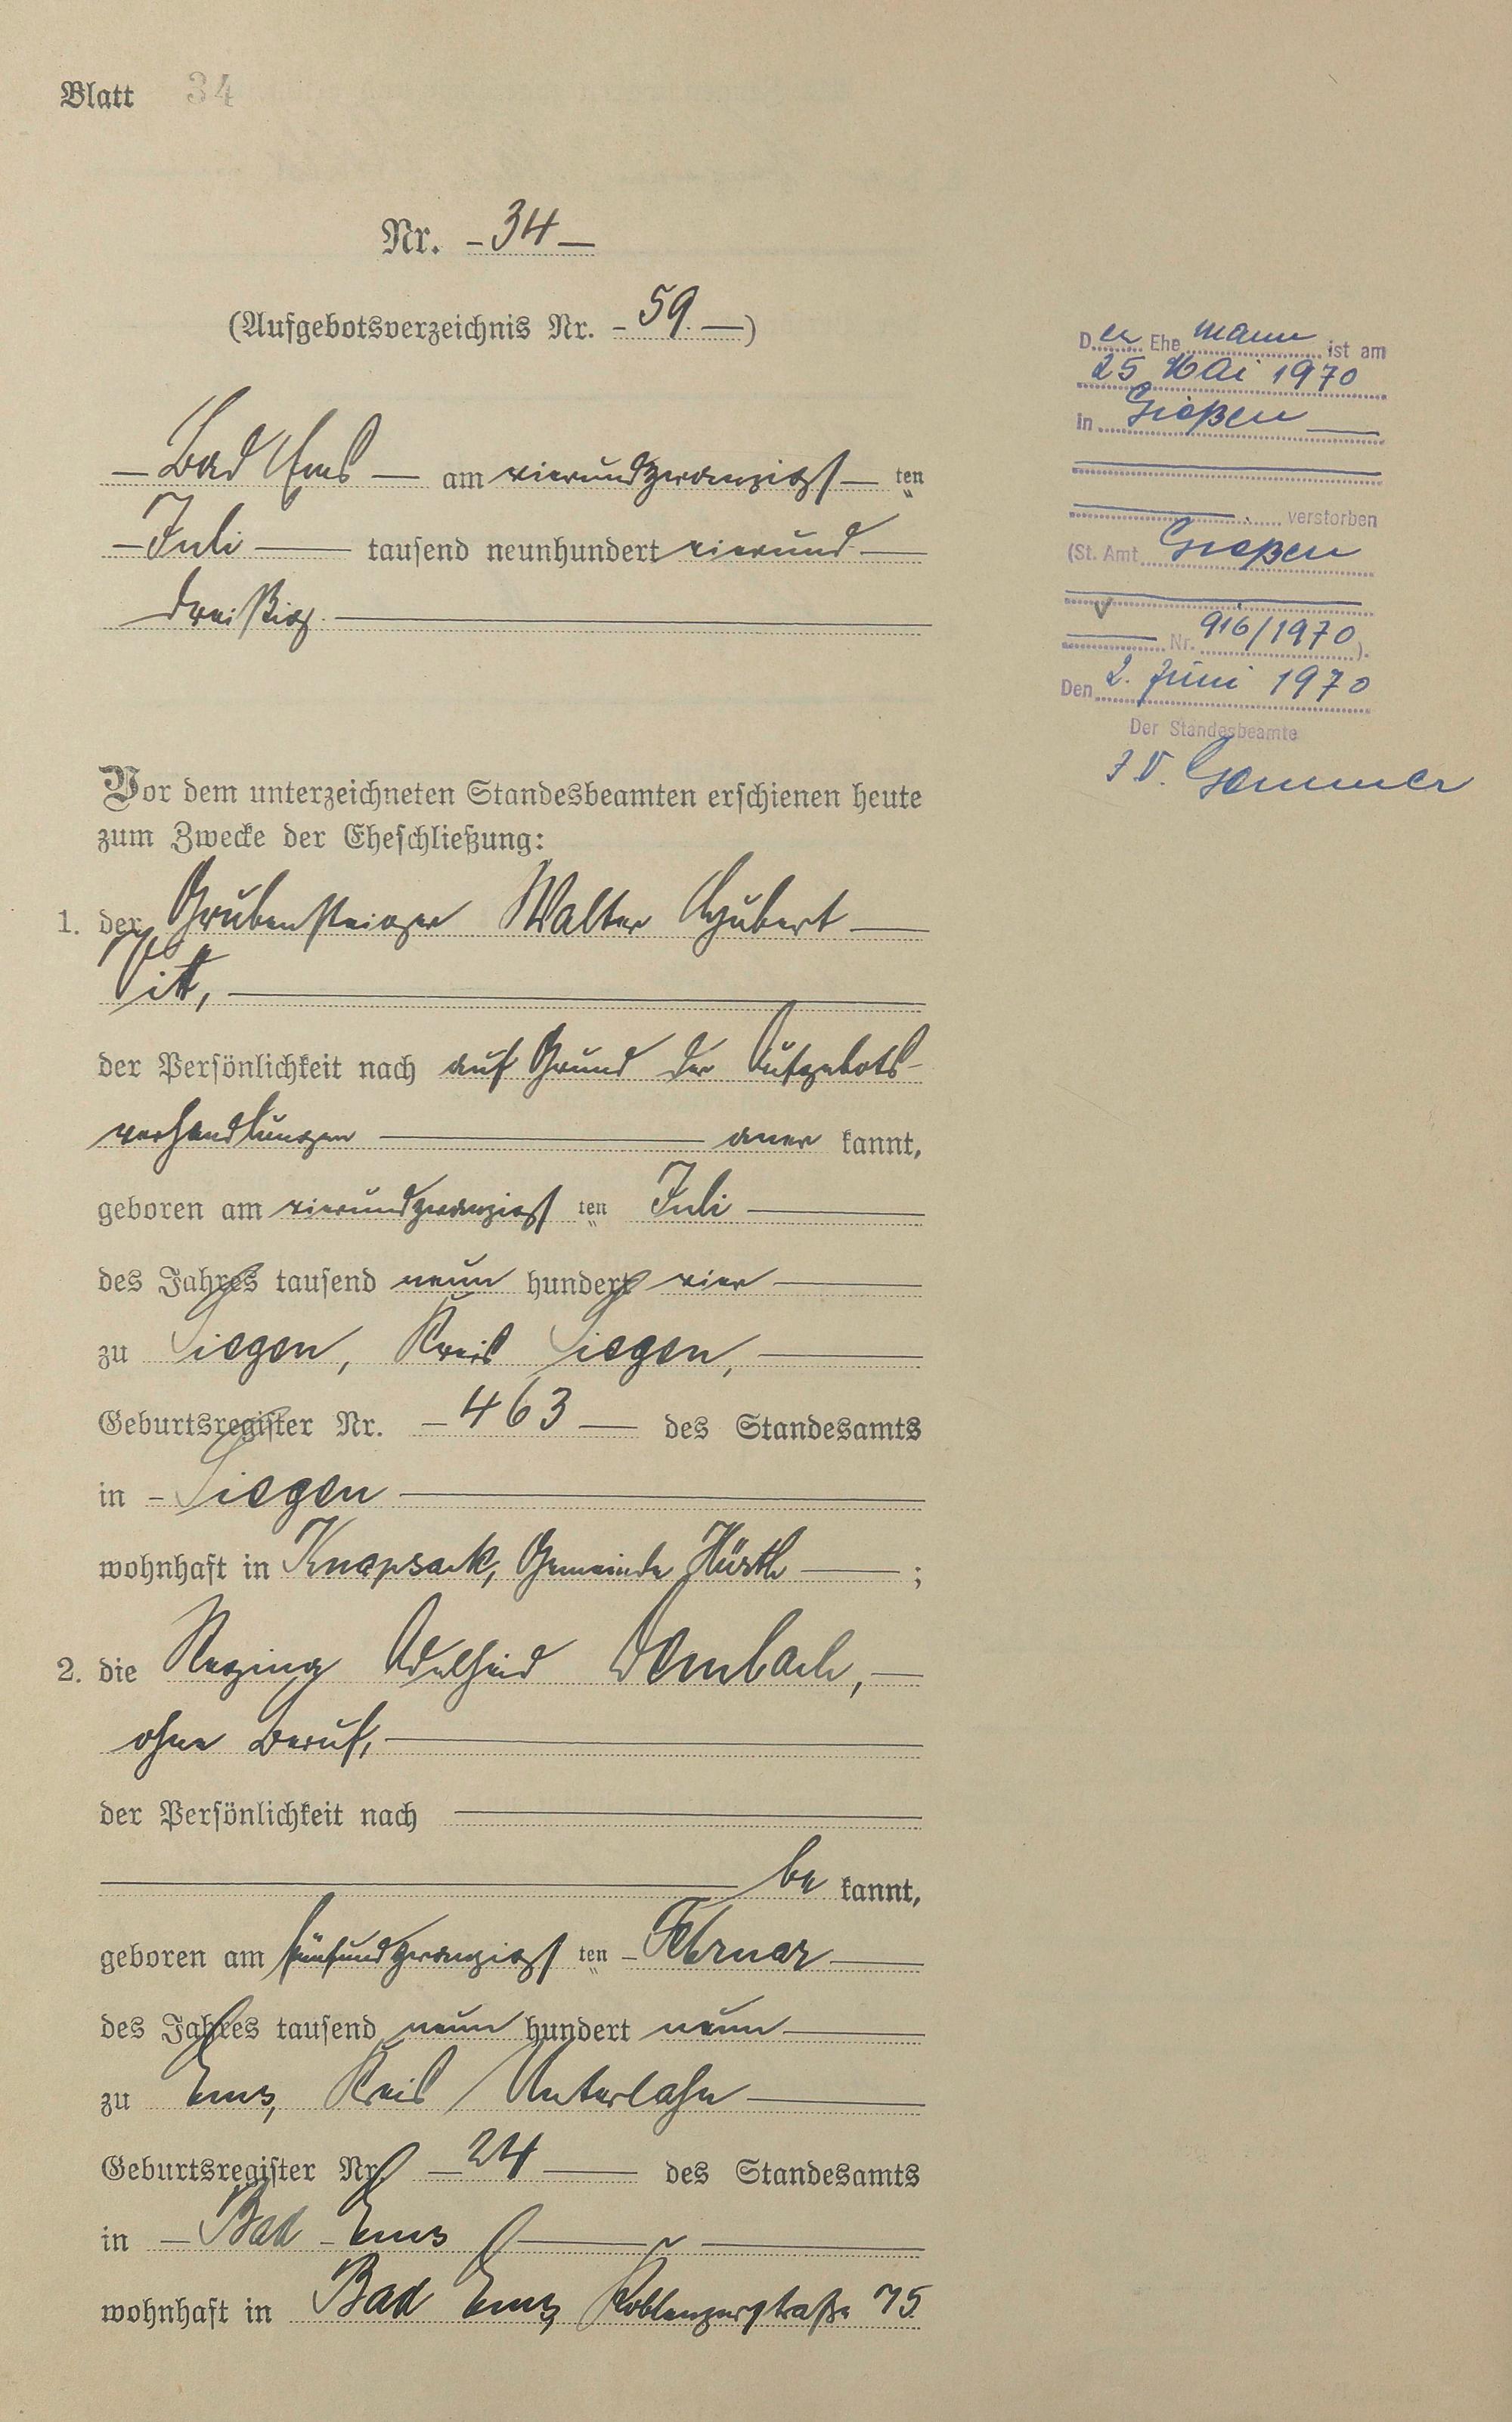 Blatt 34
Nr. – 34 –
(Aufgebotsverzeichnis Nr. – 59. –)
– Bad Ems – am vierundzwanzigst – ten
– Juli – tausend neunhundert vierund –
dreißig. –
Vor dem unterzeichneten Standesbeamten erschienen heute
zum Zwecke der Eheschließung:
1. der Grubensteiger Walter Hubert –
Vitt, –
der Persönlichkeit nach auf Grund der Aufgebots-
verhandlungen – aner kannt,
geboren am vierundzwanzigst ten Juli –
des Jahres tausend neun hundert vier –
zu Siegen, Kreis Siegen, –
Geburtsregister Nr. – 463 – des Standesamts
in – Siegen –
wohnhaft in Knapsack, Gemeinde Hürth – ;
2. die Regina Adelheid Dombach, –
ohne Beruf, –
der Persönlichkeit nach –
– be kannt,
geboren am fünfundzwanzigst ten – Februar –
des Jahres tausend neun hundert neun –
zu Ems, Kreis Unterlahn –
Geburtsregister Nr. – 24 – des Standesamts
in – Bad – Ems –
wohnhaft in Bad Ems, Koblenzerstraße 75.
Der Ehe mann ist am
25 Mai 1970
in Gießen –
verstorben
(St. Amt Gießen
Nr. 916/1970).
Den 2. Juni 1970
Der Standesbeamte
I. V.